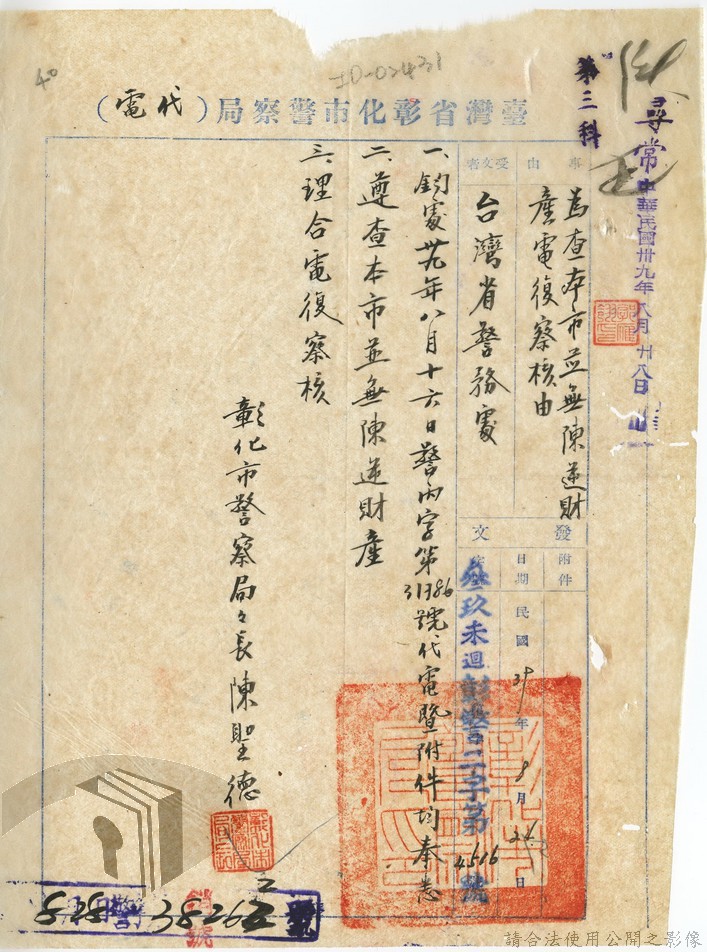 40
ID-02431
第三科
尋常
中華民國卅九年八月廿八日
臺灣省彰化市警察局(代電)
事由
為查本市並無陳逆財
產電復察核由
受文者
台灣省警務處
發文
附件
日期 民國39年8月26日
叁玖未迴彰警二字第4516號
一、鈞處卅九年八月十六日警丙字第31786號代電暨附件均奉悉
二、遵查本市並無陳逆財產
三、理合電復察核
彰化市警察局々長陳聖德
828
38262
號
請合法使用公開之影像